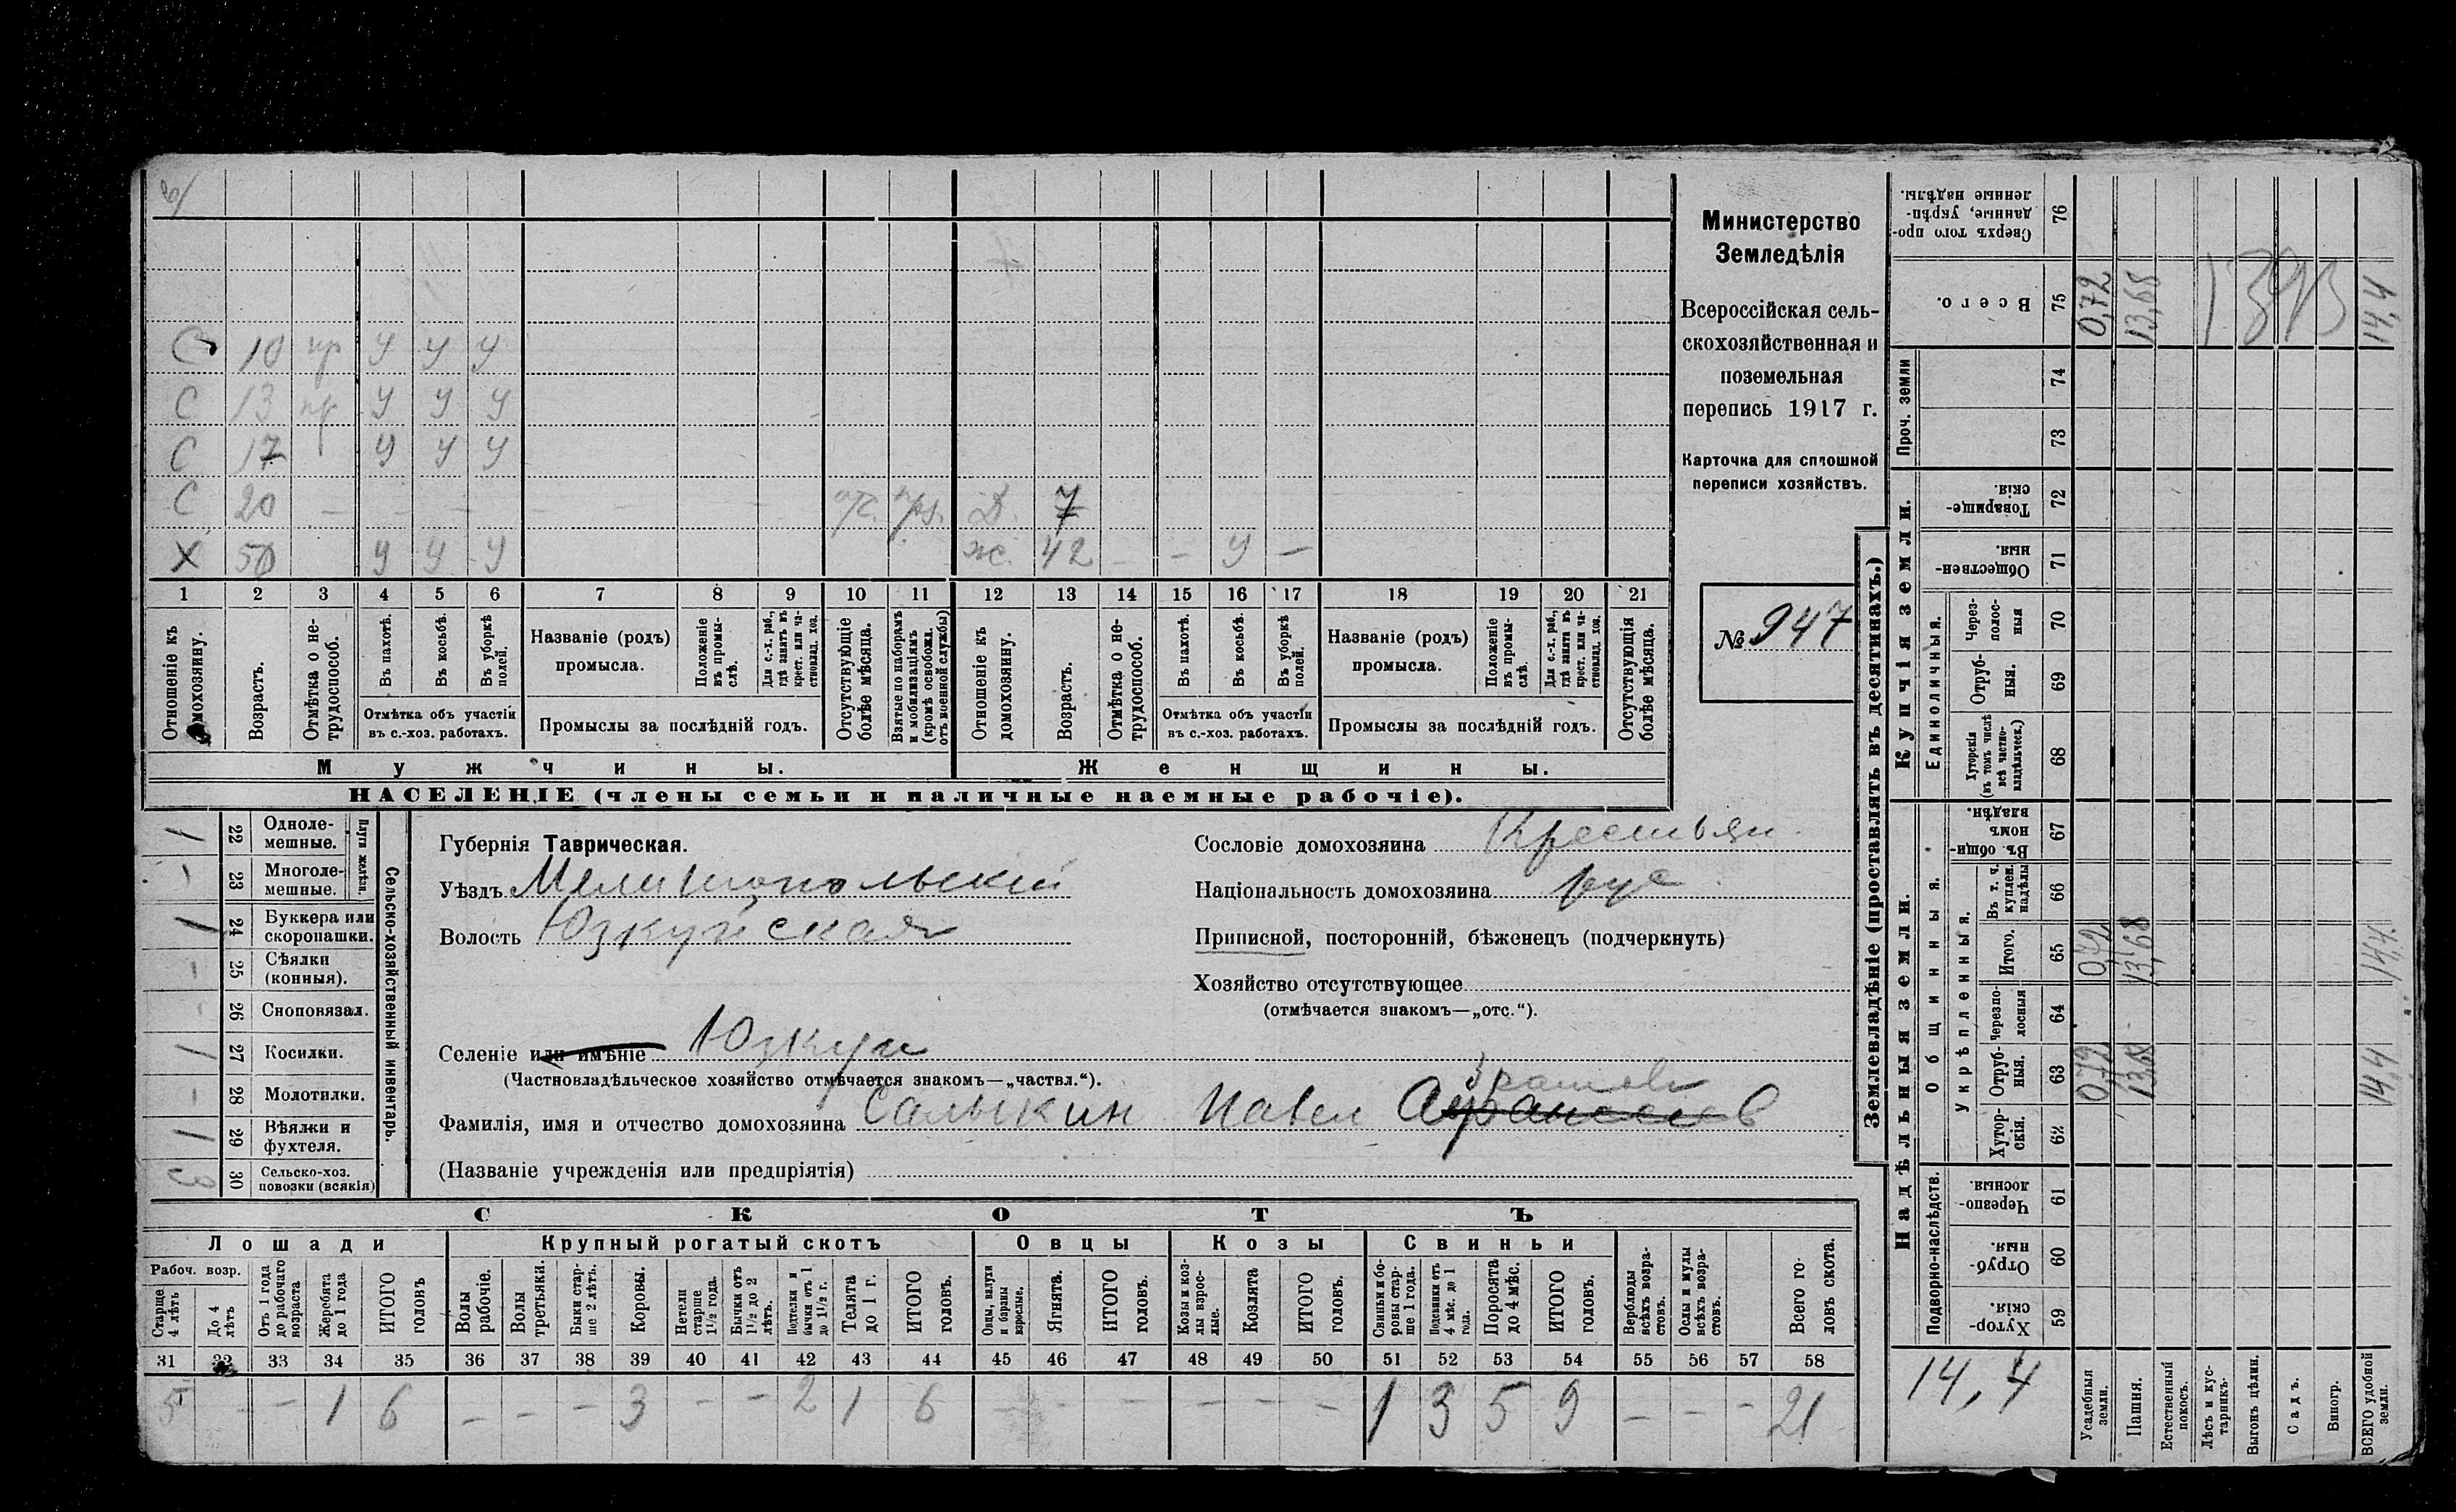 С 10 пр У У У
С 13 пр У У У
С 17 У У У
С 20 — — — — — — отс. Д. 7
Х 50 У У У ж. 42 — — У —
1 2 3 4 5 6 7 8 9 10 11 12 13 14 15 16 17 18 19 20 21
Отношеніе къ домохозяину.
Возрастъ.
Отмѣтка о нетрудоспособ.
Въ пахотѣ.
Въ косьбѣ.
Въ уборкѣ полей.
Отмѣтка объ участіи въ с.-хоз. работахъ.
Названіе (родъ) промысла.
Положеніе въ промыслѣ.
Для с.-х. раб., гдѣ занятъ въ крест. или частновлад. хоз.
Промыслы за послѣдній годъ.
Отсутствующіе болѣе мѣсяца.
Взятые по наборамъ и мобилизаціямъ (кромѣ освобожд. отъ военной службы)
Отношеніе къ домохозяину.
Возрастъ.
Отмѣтка о нетрудоспособ.
Въ пахотѣ.
Въ косьбѣ.
Въ уборкѣ полей.
Отмѣтка объ участіи въ с.-хоз. работахъ.
Названіе (родъ) промысла.
Положеніе въ промыслѣ.
Для с.-х. раб., гдѣ занята въ крест. или частновлад. хоз.
Промыслы за послѣдній годъ.
Отсутствующія болѣе мѣсяца.
Мужчины.
Женщины.
НАСЕЛЕНІЕ (члены семьи и наличные наемные рабочіе).
Министерство
Земледѣлія
Всероссійская сель-
скохозяйственная и
поземельная
перепись 1917 г.
Карточка для сплошной
переписи хозяйствъ.
№ 947
1 22 Однолемешные.
— 23 Многолемешные.
Плуги желѣзн.
1 24 Буккера или скоропашки.
— 25 Сѣялки (конныя).
— 26 Сноповязал.
1 27 Косилки.
— 28 Молотилки.
1 29 Вѣялки и фухтеля.
3 30 Сельско-хоз. повозки (всякія)
Сельско-хозяйственный инвентарь.
Губернія Таврическая.
Уѣздъ Мелитопольскій
Волость Юзкуйская
Селеніе или имѣніе Юзкуи
(Частновладѣльческое хозяйство отмѣчается знакомъ—„частвл.“).
Фамилія, имя и отчество домохозяина Салыкин Павел Афанасіев
(Названіе учрежденія или предпріятія)
Сословіе домохозяина Крестьян.
Національность домохозяина рус
Приписной, посторонній, бѣженецъ (подчеркнуть)
Хозяйство отсутствующее
(отмѣчается знакомъ—„отс.“).
СКОТЪ
Лошади
Крупный рогатый скотъ
Овцы
Козы
Свиньи
Рабоч. возр.
Старше 4 лѣтъ
До 4 лѣтъ
Отъ 1 года до рабочаго возраста
Жеребята до 1 года
ИТОГО головъ
Волы рабочіе.
Волы третьяки.
Быки старше 2 лѣтъ.
Коровы.
Нетели старше 1½ года.
Бычки отъ 1½ до 2 лѣтъ.
Подтелки и бычки отъ 1 до 1½ г.
Телята до 1 г.
ИТОГО головъ.
Овцы, валухи и бараны взрослые.
Ягнята.
ИТОГО головъ.
Козы и козлы взрослые.
Козлята
ИТОГО головъ.
Свиньи и боровы старше 1 года.
Подсвинки отъ 4 мѣс. до 1 года.
Поросята до 4 мѣс.
ИТОГО головъ.
Верблюды всѣхъ возрастовъ.
Ослы и мулы всѣхъ возрастовъ.
Всего головъ скота.
31 32 33 34 35 36 37 38 39 40 41 42 43 44 45 46 47 48 49 50 51 52 53 54 55 56 57 58
5 — — 1 6 — — — 3 — — 2 1 6 — — — — — — 1 3 5 9 — — — 21
Землевладѣніе (проставлять въ десятинахъ.)
Купчія земли.
Надѣльныя земли.
Сверхъ того проданные, укрѣпленные надѣлы. 76
Всего. 75 0,72 13,68 1393 14,4
Проч. земли 74 73
Товарищескія. 72
Общественныя. 71
Единоличныя.
Черезполосныя 70
Отрубныя. 69
Хуторскія (въ томъ числѣ всѣ частновладѣльческ.) 68
Общинныя.
Въ общинномъ владѣн. 67
Укрѣпленныя.
Въ т. ч. куплен. надѣлы 66
Итого. 65 0,72 13,68 14,4
Черезполосныя 64
Отрубныя. 63 0,72 13,68 14,4
Хуторскія. 62
Подворно-наслѣдств.
Черезполосныя. 61
Отрубныя. 60
Хуторскія. 59
14,4
Усадебныя земли.
Пашня.
Естественный покосъ.
Лѣсъ и кустарникъ.
Выгонъ цѣлин.
Садъ.
Виногр.
ВСЕГО удобной земли.